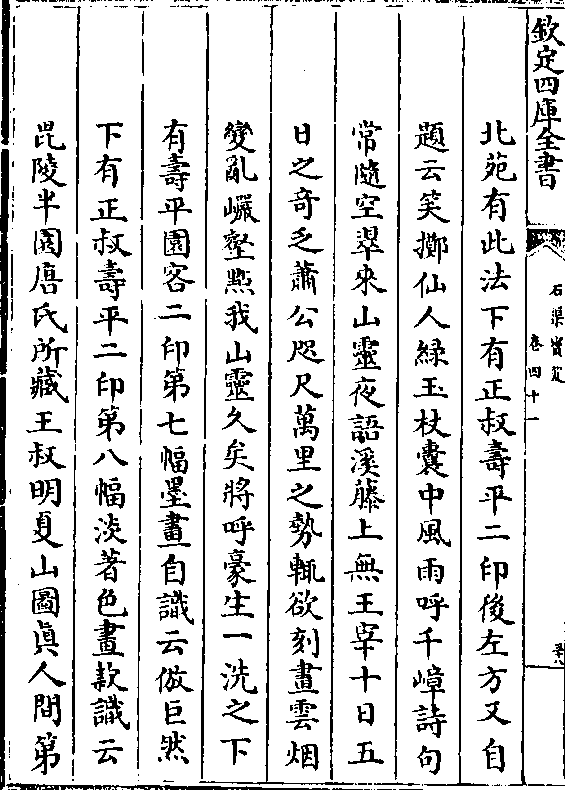 欽定四庫全書
石渠寳笈
卷四十一
北苑有此法下有正叔壽平二印後左方又自
題云笑擲仙人緑玉杖囊中風雨呼千嶂詩句
常隨空翠來山靈夜語溪藤上無王宰十日五
日之奇乏蕭公咫尺萬里之勢輒欲刻畫雲烟
變亂巖壑㸃我山靈久矣將呼豪生一洗之下
有壽平園客二印第七幅墨畫自識云倣巨然
下有正叔壽平二印第八幅淡著色畫款識云
毘陵半園唐氏所藏王叔明夏山圖真人間第